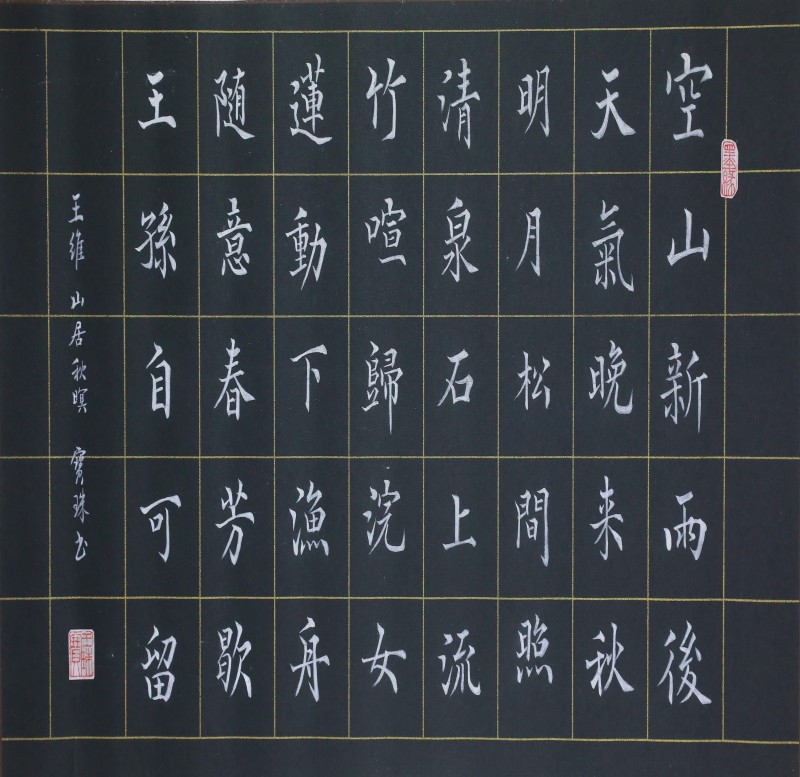 空山新雨後
天氣晚来秋
明月松間照
清泉石上流
竹喧歸浣女
蓮動下漁舟
随意春芳歇
王孫自可留
王維 山居秋暝 寶珠书